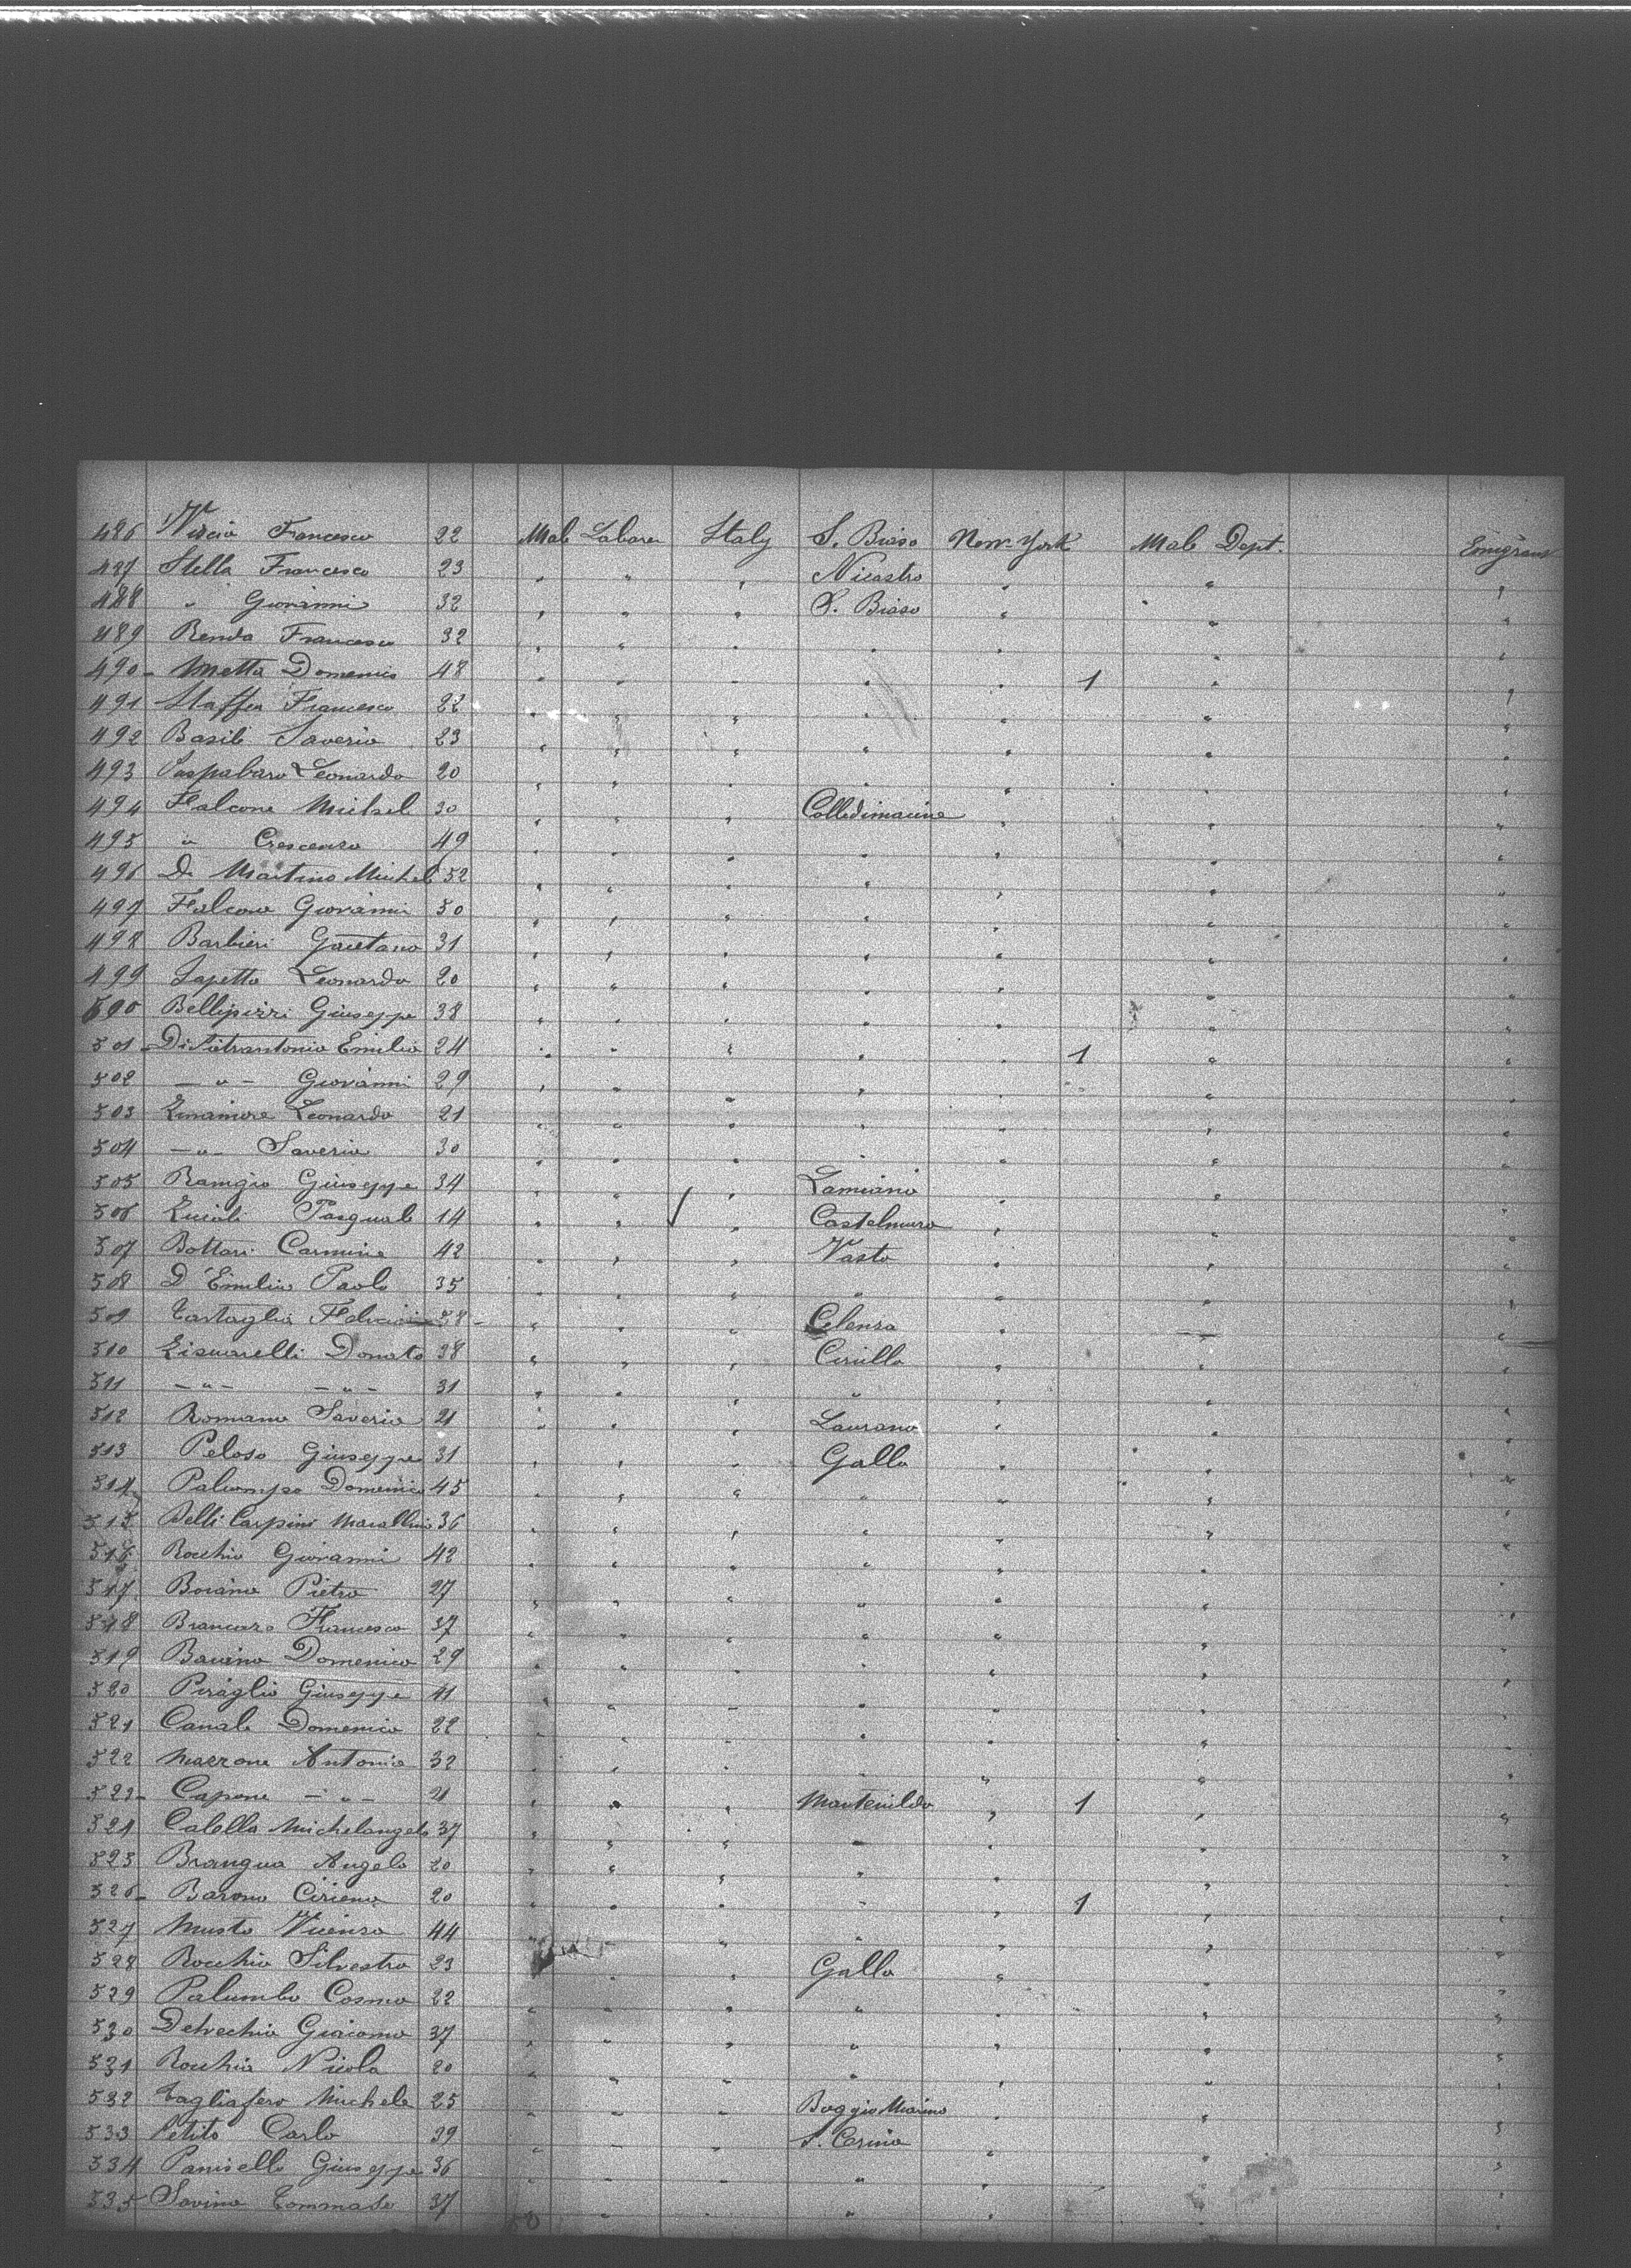 486 Niscia Francesco 22 Male Labarer Italy S. Biaso New York Male Dept. Emigrant
487 Stella Francesco 23 " " " Nicastro " " "
488 " Giovanni 32 " " " S. Biaso " " "
489 Renda Francesco 32 " " " " " " "
490 - Metta Domenico 48 " " " " " 1 " "
491 Staffea Francesco 22 " " " " " " "
492 Basile Saverio 23 " " " " " " "
493 Leonardo 20 " " " " " " "
494 Falcone Michel 30 " " " Colledimacine " " "
495 " Crescenzo 49 " " " " " " "
496 De Martino Michel 52 " " " " " " "
497 Falcone Giovanni 50 " " " " " " "
498 Barbieri Gaetano 31 " " " " " " "
499 Sapetta Leonardo 20 " " " " " " "
500 Bellipizzi Giuseppe 38 " " " " " " "
501 - Di Pietrantonio Emilio 24 " " " " " 1 " "
502 - " - Giovanni 29 " " " " " " "
503 Leonardo 21 " " " " " " "
504 - " - Saverio 30 " " " " " " "
505 Ramigio Giuseppe 34 " " " Lamiano " " "
506 Luciali Pasquale 14 " " " Castelmuro " " "
507 Bottari Carmine 42 " " " Vasto " " "
508 D'Emilio Paolo 35 " " " " " " "
509 Tartaglia 38 - " " " Celenza " " "
510 Lisciarelli Donato 38 " " " Cirilla " " "
511 - " - - " - 31 " " " " " " "
512 Romano Saverio 21 " " " Laurano " " "
513 Peloso Giuseppe 31 " " " Gallo " " "
514 Palumpo Domenico 45 " " " " " " "
515 Delli Carpini Marcellino 36 " " " " " " "
516 Rocchio Giovanni 42 " " " " " " "
517 Boiano Pietro 27 " " " " " " "
518 Brancaro Francesco 37 " " " " " " "
519 Baiano Domenico 29 " " " " " " "
520 Piraglio Giuseppe 41 " " " " " " "
521 Canale Domenico 22 " " " " " " "
522 Marrone Antonio 32 " " " " " " "
523 - Capone - " - 21 " " " Montenildo " 1 " "
524 Calella Michelangelo 37 " " " " " " "
525 Brangua Angelo 20 " " " " " " "
526 - Barone 20 " " " " " 1 " "
527 Musto Vicenzo 44 " " " " " " "
528 Rocchio Silvestro 23 " " " Gallo " " "
529 Palumbo Cosmo 22 " " " " " " "
530 Delvechio Giacomo 37 " " " " " " "
531 Rocchio Nicola 20 " " " " " " "
532 Tagliafero Michele 25 " " " Boggio Marino " " "
533 Petito Carlo 39 " " " S. Carino " " "
534 Paniselli Giuseppe 36 " " " " " " "
535 Savino Tommaso 37 " " " " " " "